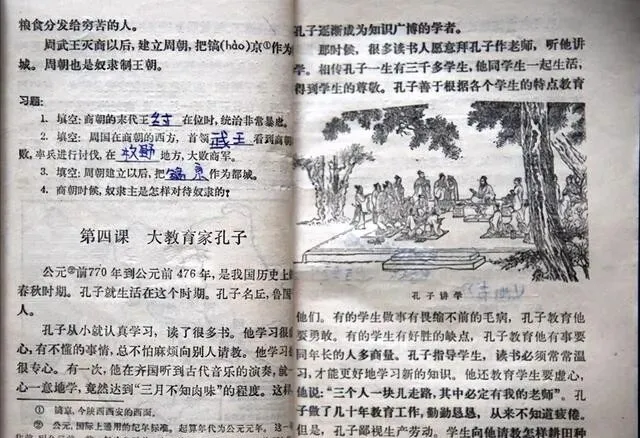 粮食分发给穷苦的人。
周武王灭商以后，建立周朝，把镐(hào)京①作为
城。周朝也是奴隶制王朝。
习题：
1. 填空：商朝的末代王纣在位时，统治非常暴虐。
2. 填空：周国在商朝的西方，首领武王看到商朝
败，率兵进行讨伐，在牧野地方，大败商军。
3. 填空：周朝建立以后，把镐京作为都城。
4. 商朝时候，奴隶主是怎样对待奴隶的？
第四课 大教育家孔子
公元②前770年到公元前476年，是我国历史上
春秋时期。孔子就生活在这个时期。孔子名丘，鲁国
人。
孔子从小就认真学习，读了很多书。他学习很
心，有不懂的事情，总不怕麻烦向别人请教。他学习
很专心。有一次，他在齐国听到古代音乐的演奏，就
心一意地学，竟然达到“三月不知肉味”的程度。这样
① 镐京，今陕西西安的西面。
② 公元，国际上通用的纪年标准。起算年代为公元元年。这一
孔子逐渐成为知识广博的学者。
那时候，很多读书人愿意拜孔子作老师，听他讲
学。相传孔子一生有三千多学生，他同学生一起生活，
得到学生的尊敬。孔子善于根据各个学生的特点教育
孔子讲学
他们。有的学生做事有畏缩不前的毛病，孔子教育他
要勇敢。有的学生有好胜的缺点，孔子教育他有事要
同年长的人多商量。孔子指导学生，读书必须常常温
习，才能更好地学习新的知识。他还教育学生要虚心，
他说：“三个人一块儿走路，其中必定有我的老师”。孔
子做了几十年教育工作，勤勤恳恳，从来不知道疲倦。
但是，孔子鄙视生产劳动。学生向他请教怎样耕田种